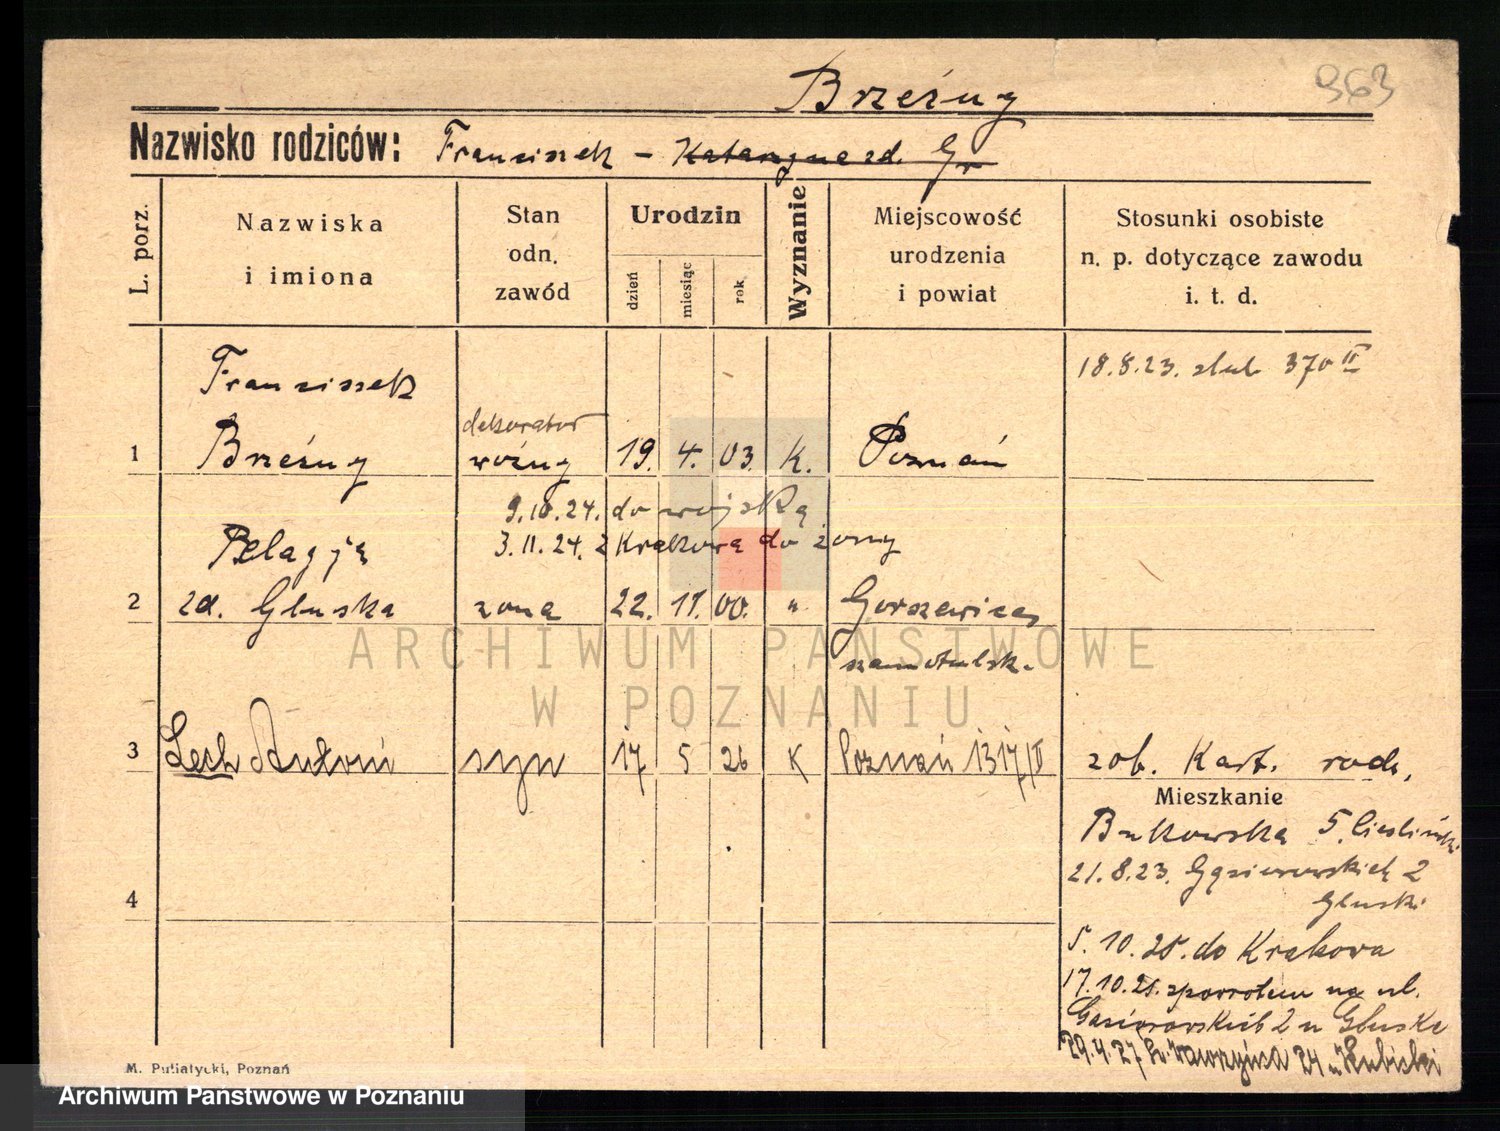 963
Brzeźny
Nazwisko rodziców: Franciszek – Katarzyna zd. Gr
L. porz.
Nazwiska i imiona
Stan odn. zawód
Urodzin
dzień
miesiąc
rok
Wyznanie
Miejscowość urodzenia i powiat
Stosunki osobiste n. p. dotyczące zawodu i. t. d.
18.8.23. ślub 370 II
Franciszek
dekorator
1 Brzeźny woźny 19. 4. 03. K. Poznań
9.10.24. do wojska
Pelagja
3.11.24. z Krakowa do żony
2 zd. Głuska żona 22. 11. 00. " Gorszewice
szamotulsk.
3 Lech Antoni syn 17 5 26 K Poznań 1317/II zob. Kart. rodz.
Mieszkanie
Bukowska 5.
21.8.23. Gąsiorowskich 2
Głuski
4
5.10.25. do Krakowa
17.10.25. zpowrotem na ul.
Gąsiorowskich 2 u Głuska
29.4.27 Św. Wawrzyńca 24 u Kubicki
M. Putiatycki, Poznań
ARCHIWUM PAŃSTWOWE
W POZNANIU
Archiwum Państwowe w Poznaniu